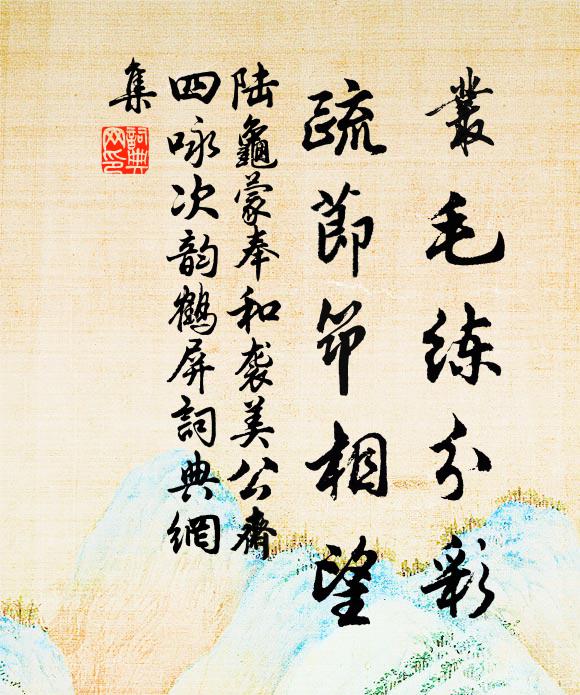 叢毛練分彩
疏節筇相望
陆龜蒙奉和袭美公齋
四咏次韵鶴屏詞典網
集
詞典網印